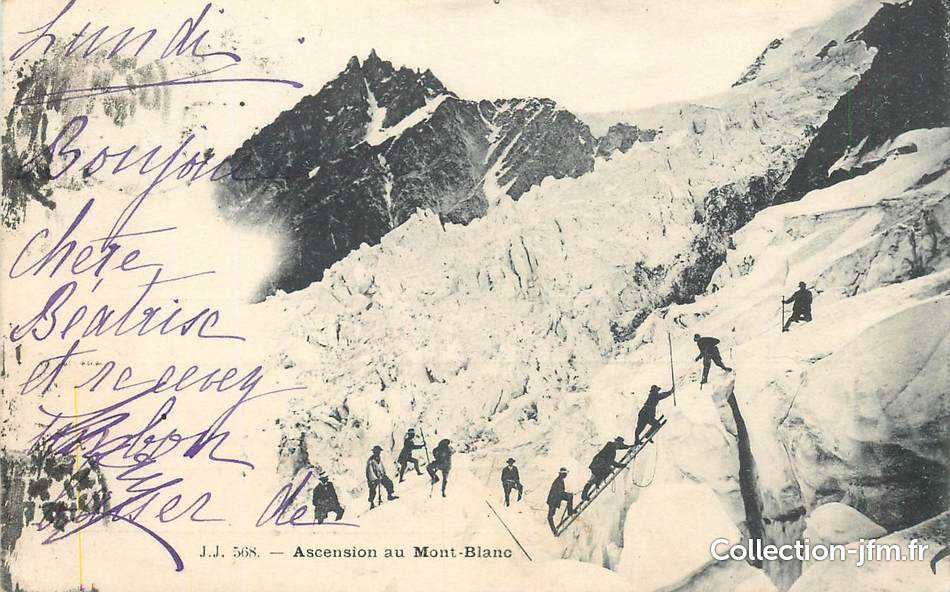 Lundi
Bonjour
chère
Béatrisc
et recevey
bon
baiser de
J.J. 568. — Ascension au Mont-Blanc
Collection-jfm.fr